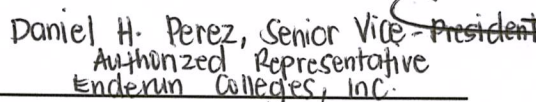 Daniel H. Perez, Senior Vice-President
Authorized Representative
Enderun Colleges, Inc.